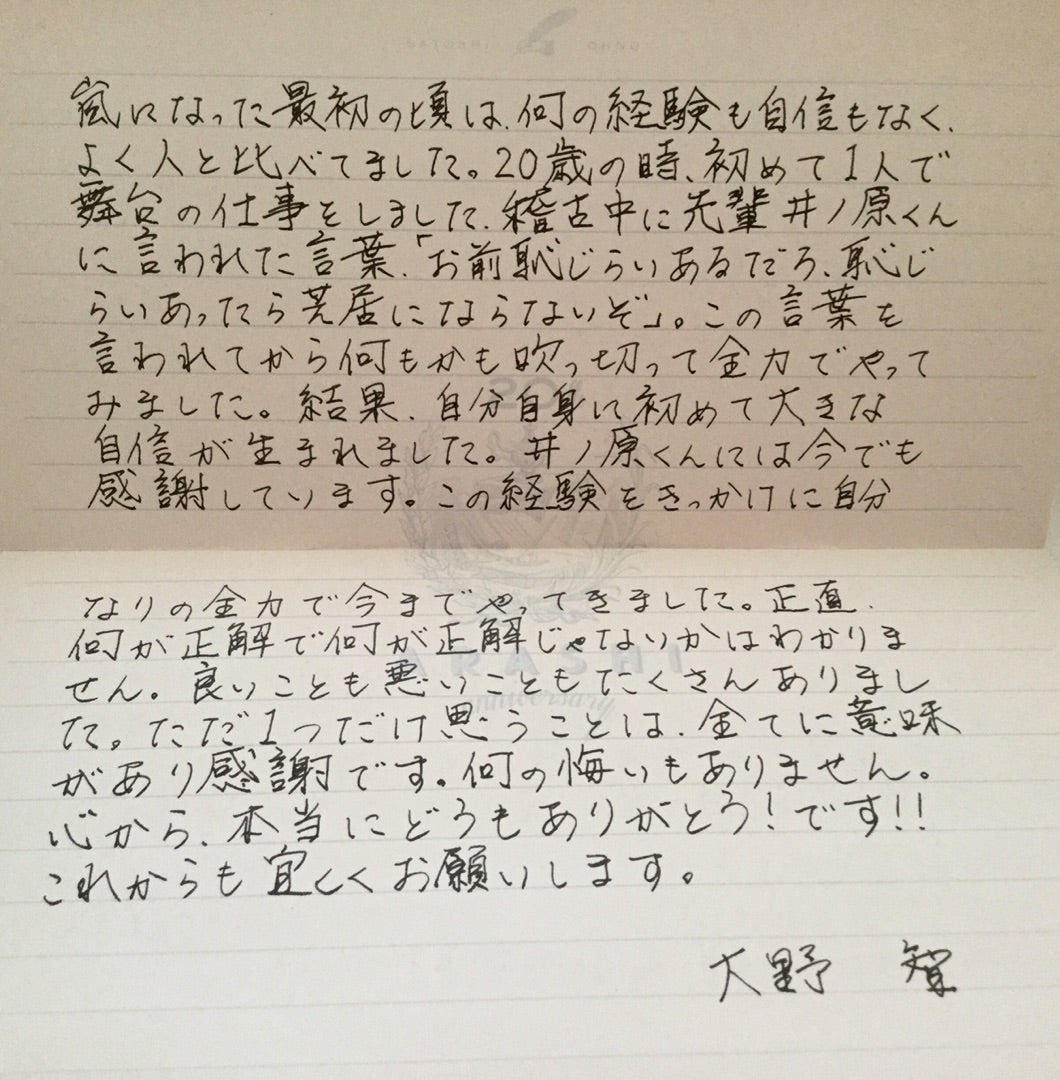 嵐になった最初の頃は、何の経験も自信もなく、
よく人と比べてました。20歳の時、初めて1人で
舞台の仕事をしました、稽古中に先輩井ノ原くん
に言われた言葉、「お前恥じらいあるだろ、恥じ
らいあったら芝居にならないぞ」。この言葉を
言われてから何もかも吹っ切って全力でやって
みました。結果、自分自身に初めて大きな
自信が生まれました。井ノ原くんには今でも
感謝しています。この経験をきっかけに自分
なりの全力で今までやってきました。正直、
何が正解で何が正解じゃないかはわかりま
せん。良いことも悪いこともたくさんありまし
た。ただ1つだけ思うことは、全てに意味
があり感謝です。何の悔いもありません。
心から、本当にどうもありがとう!です!!
これからも宜しくお願いします。
大野 智
ARASHI
anniversary